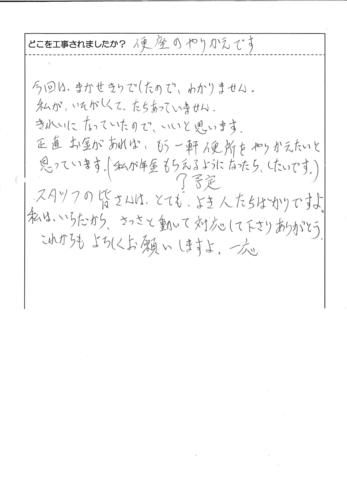 どこを工事されましたか? 便座のやりかえです
今回は、まかせきりでしたので、わかりません。
私が、いそがしくて、たちあっていません。
きれいになっていたので、いいと思います。
正直お金があれば、もう一軒便所をやりかえたいと
思っています。(私が年金もらえるようになったら、したいです。)
? 予定
スタッフの皆さんは、とても、よき人たちばかりですよ。
私は、いらちだから、さっさと動いて対応して下さりありがとう。
これからもよろしくお願いしますよ。一応